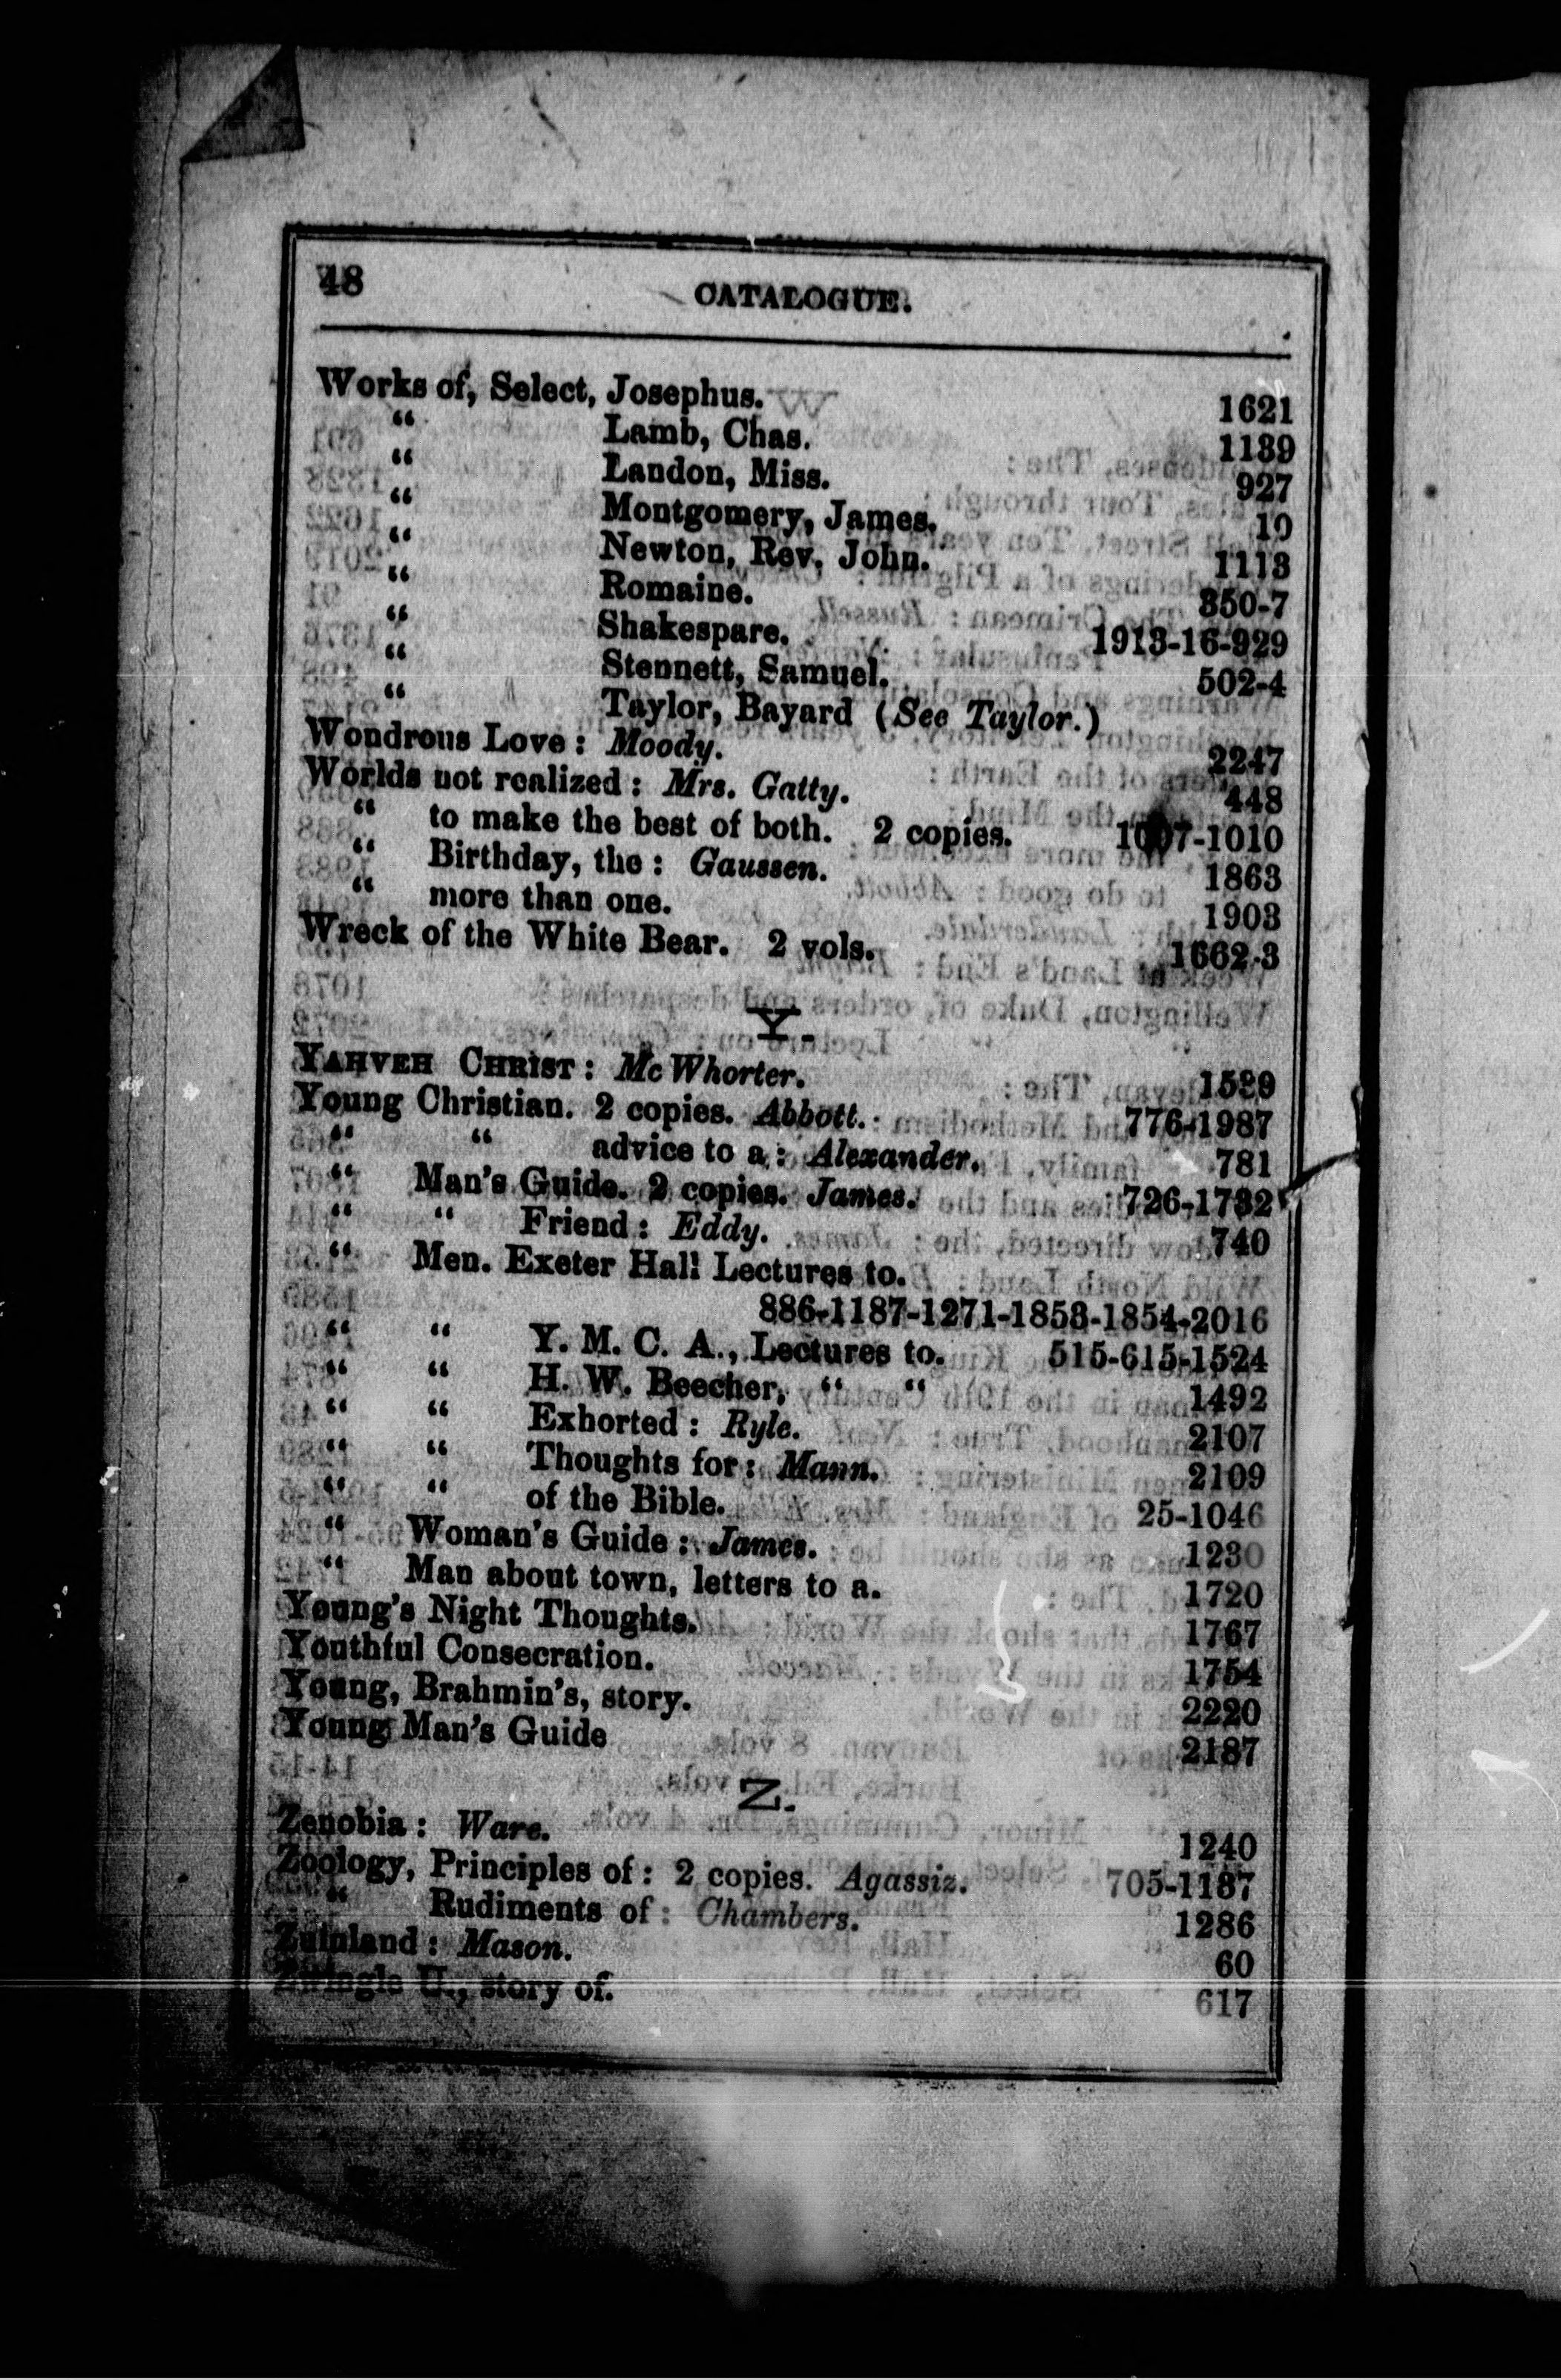 48 CATALOGUE.
Works of, Select, Josephus. 1621
“ Lamb, Chas. 1139
“ Landon, Miss. 927
“ Montgomery, James. 10
“ Newton, Rev. John. 1113
“ Romaine. 350-7
“ Shakespare. 1913-16-929
“ Stennett, Samuel. 502-4
“ Taylor, Bayard (See Taylor.)
Wondrous Love: Moody. 2247
Worlds not realized: Mrs. Gatty. 448
“ to make the best of both. 2 copies. 1007-1010
“ Birthday, the: Gaussen. 1863
“ more than one. 1903
Wreck of the White Bear. 2 vols. 1662-3
Y.
YAHVEH CHRIST: McWhorter. 1589
Young Christian. 2 copies. Abbott. 776-1987
“ “ advice to a: Alexander. 781
“ Man's Guide. 2 copies. James. 726-1732
“ “ Friend: Eddy. 740
“ Men. Exeter Hall Lectures to.
886-1187-1271-1853-1854-2016
“ “ Y. M. C. A., Lectures to. 515-615-1524
“ “ H. W. Beecher, “ “ 1492
“ “ Exhorted: Ryle. 2107
“ “ Thoughts for: Mann. 2109
“ “ of the Bible. 25-1046
“ Woman's Guide: James. 1230
“ Man about town, letters to a. 1720
Young's Night Thoughts. 1767
Youthful Consecration. 1754
Young, Brahmin's, story. 2220
Young Man's Guide 2187
Z.
Zenobia: Ware. 1240
Zoology, Principles of: 2 copies. Agassiz. 705-1187
“ Rudiments of: Chambers. 1286
Zululand: Mason. 60
Zwingle U., story of. 617